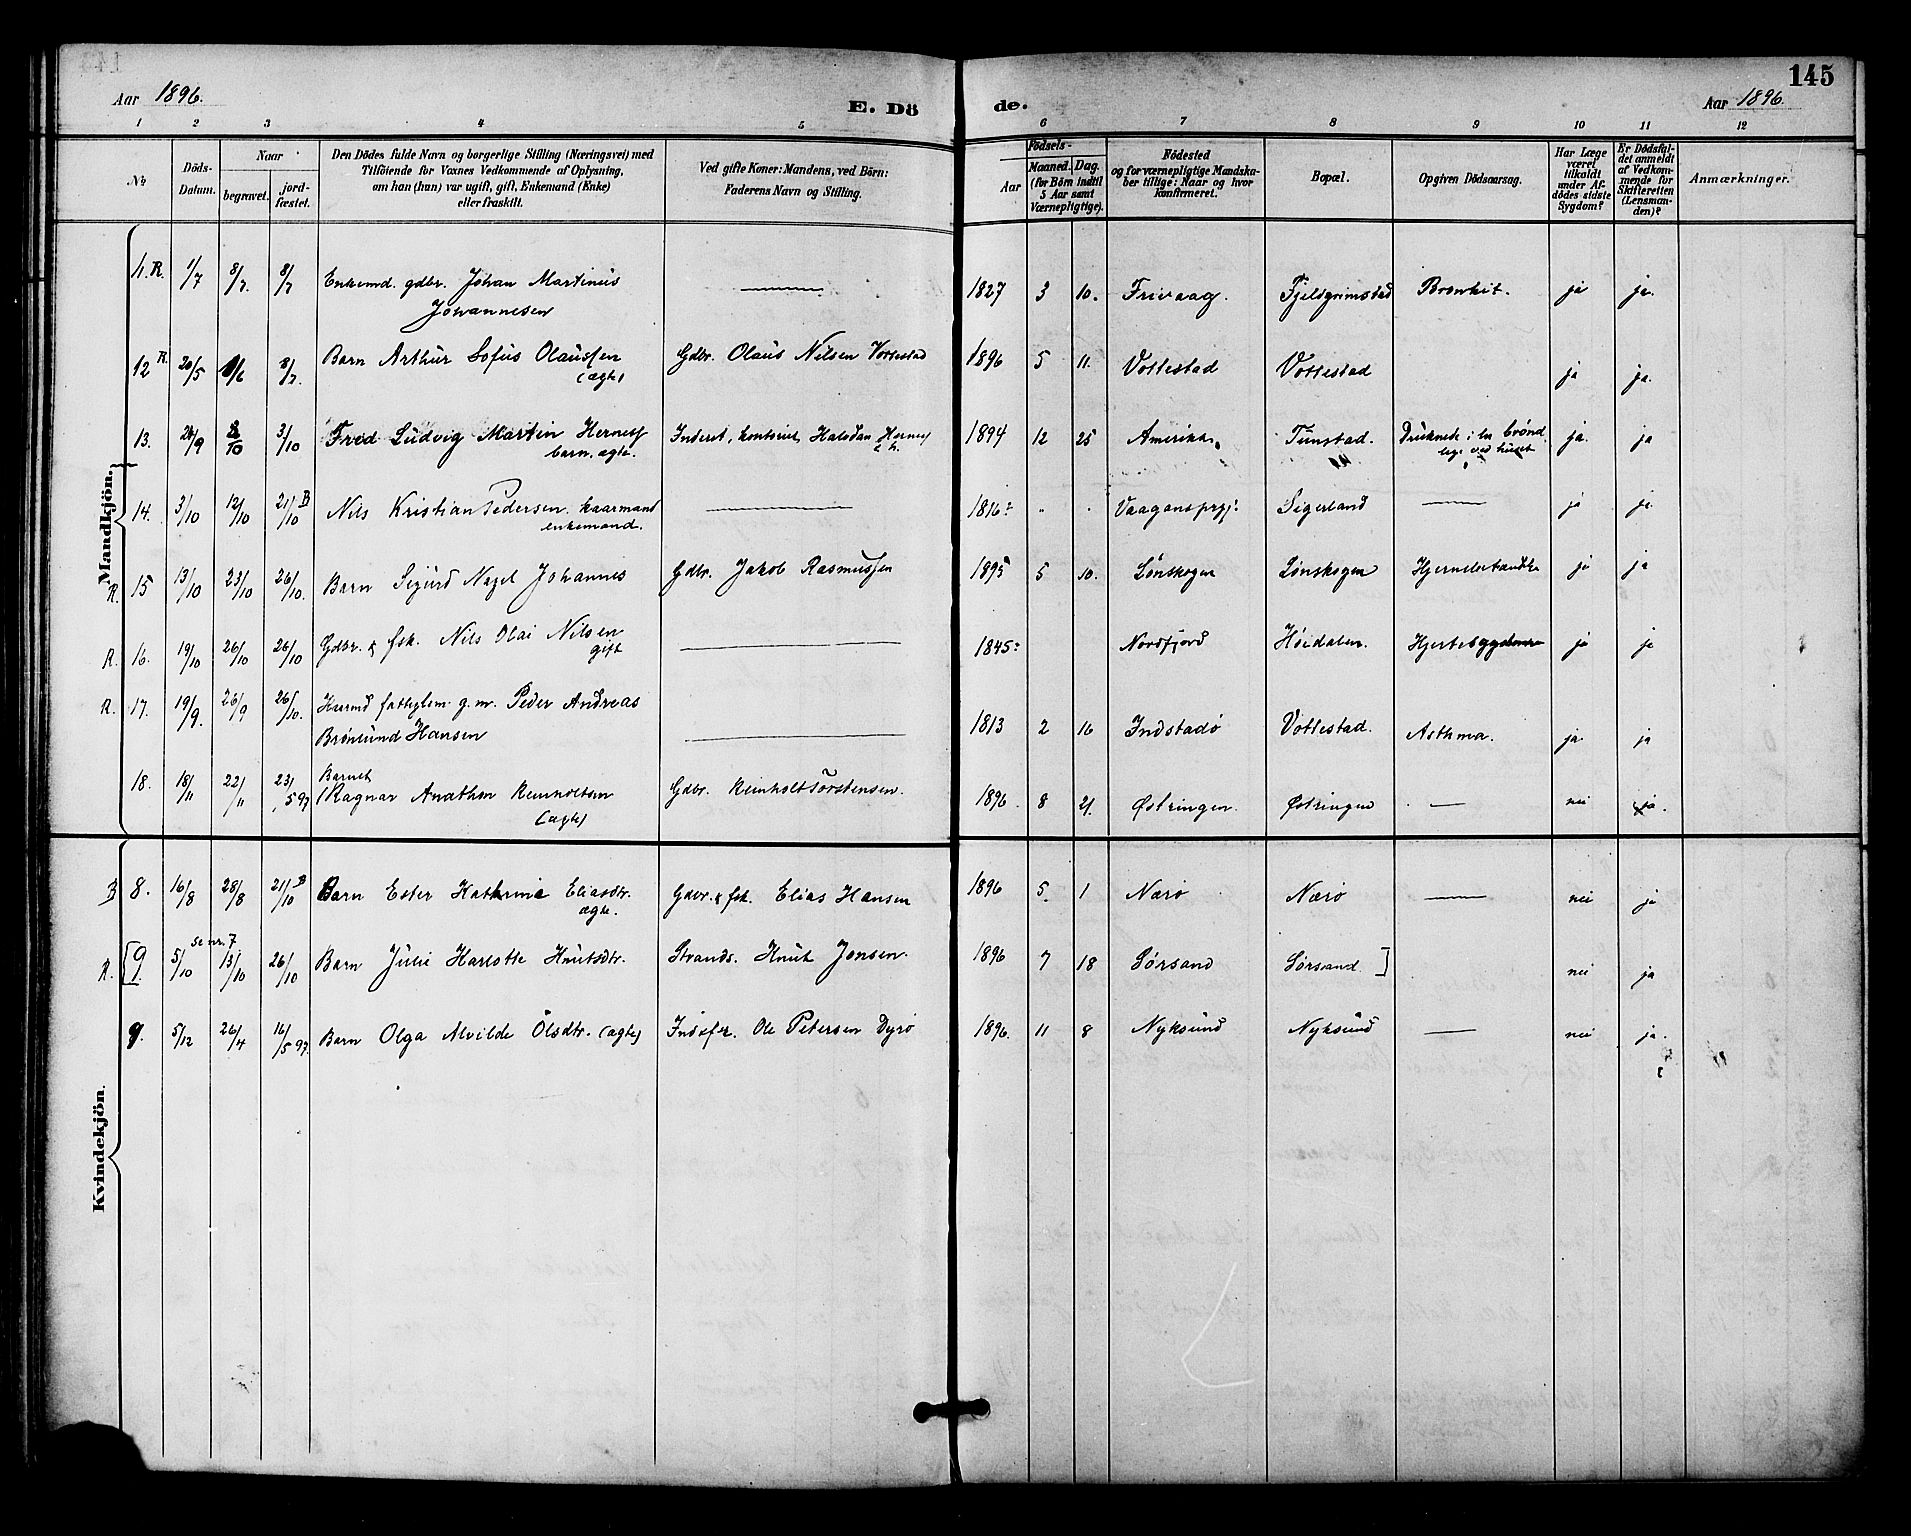 145
Aar 1896. E. Dö de. Aar 1896.
1 2 3 4 5 6 7 8 9 10 11 12
No
Döds-Datum.
Naar
begravet.
jord-fæstet.
Den Dödes fulde Navn og borgerlige Stilling (Næringsvei) med
Tilföiende for Voxnes Vedkommende af Oplysning,
om han (hun) var ugift, gift, Enkemand (Enke)
eller fraskilt.
Ved gifte Koner: Mandens, ved Börn:
Faderens Navn og Stilling.
Födsels-
Aar
Maaned. Dag.
(for Börn indtil
5 Aar samt
Værnepligtige).
Födested
og for værnepligtige Mandska-
ber tillige: Naar og hvor
konfirmeret.
Bopæl.
Opgiven Dödsaarsag.
Har Læge
været
tilkaldt
under Af-
dödes sidste
Sygdom?
Er Dödsfal-
det anmeldt
af Vedkom-
mende for
Skifteretten
(Lensman-
den)?
Anmærkninger.
Mandkjön.
R. 1/7 8/7 8/7 Enkemd. gdbr. Johan Martinus — 1827 3 10. Fjeldgrimstad Bronkit. ja ja.
Johannesen
12 R. 20/5 1/6 8/7 Barn Arthur Sofus Olaussen Gdbr. Olaus Nilsen Vottestad 1896 5 11. Vottestad Vottestad ja ja.
(ægte)
13. 3/10 Fred Ludvig Martin Herness Halvdan 1894 12 25 Amerika Tunstad. Druknede i en brønd ja. ja
barn. ægte. ved huset
14. 3/10 12/10 21/10 B Nils Kristian Pedersen. kaarmand — 1816: " " Vaagansprgj: Sigerland — ja ja.
enkemand.
R. 15 13/10 23/10 26/10. Barn Sigurd Johannes Gdbr. Jakob Rasmussen 1895 5 10. Lønskogen Lønskogen ja ja
R. 16. 19/10 26/10 26/10 Gdbr. & fsk. Nils Olai Nilsen — 1845: Nordfjord Høidalen. ja ja
gift
R. 17. 19/9. 26/9 26/10. g.m. Peder Andreas
Brønlund Hansen — 1813 2 16 Indstadø Vottestad. Asthma. ja ja
18. 18/11 22/11 23/5 97 Barnet
Ragnar Reinholtsen Gdbr. Reinholt Torstensen. 1896 8 21. Østringen. Østringen — nei ja.
(ægte)
Kvindekjön.
B 8. 16/8 28/8 21/10 B Barn Ester Kathrine Eliasdtr. Gdbr. & fsk. Elias Hansen 1896 5. 1 Nærø Nærø — nei ja
ægte.
se nr. 7
R. [9. 5/10 13/10 26/10 Barn Julie Harlotte Knutsdtr. Strands. Knut Jonsen. 1896 7 18 Sørsand Sørsand ] nei ja
9. 5/12 26/4 16/5 97. Barn Olga Alvilde Olsdtr. (ægte) Inderfr. Ole Petersen Dyrø 1896. 11 8 Nyksund Nyksund — nei ja.